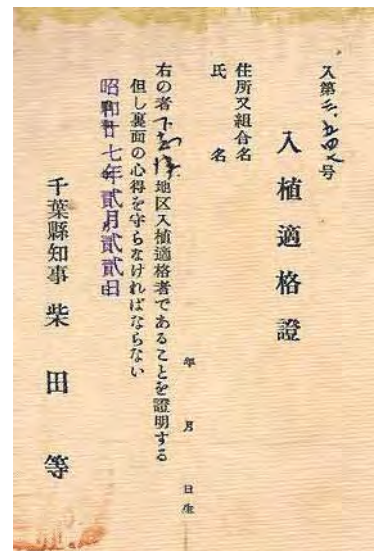 入第三、五四号
入植適格證
住所又組合名
氏名
年月日生
右の者下志津地区入植適格者であることを證明する
但し裏面の心得を守らなければならない
昭和廿七年貳月貳貳日
千葉縣知事 柴田等